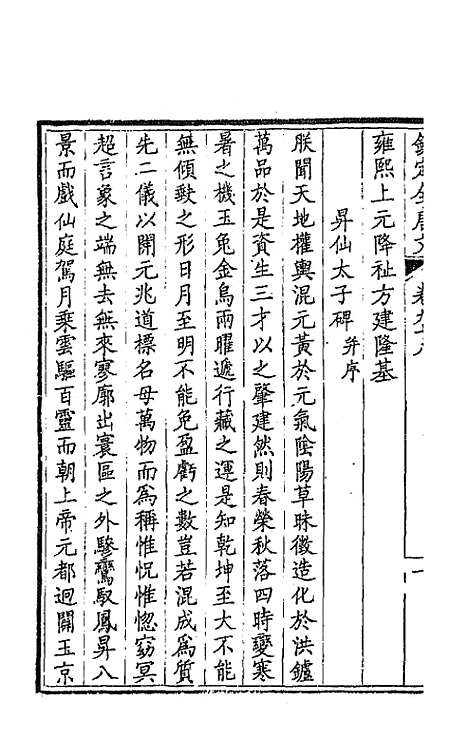 欽定全唐文 卷九十八
雍熙上元降祉方建隆基
昇仙太子碑 并序
朕聞天地權輿混元黃於元氣陰陽草昧徵造化於洪鑪
萬品於是資生三才以之肇建然則春榮秋落四時變寒
暑之機玉兔金烏兩曜遞行藏之運是知乾坤至大不能
無傾缺之形日月至明不能免盈虧之數豈若混成爲質
先二儀以開元兆道標名母萬物而爲稱惟恍惟惚窈冥
超言象之端無去無來寥廓出寰區之外驂鸞馭鳳昇八
景而戲仙庭駕月乘雲驅百靈而朝上帝元都迥闢玉京